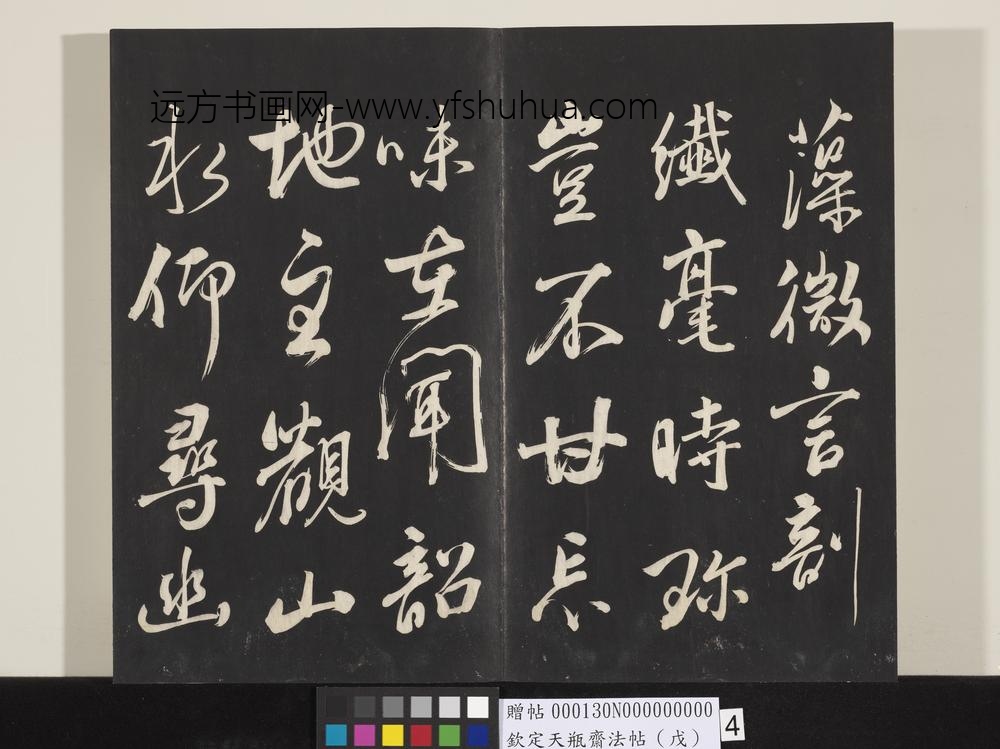 远方书画网-www.yfshuhua.com
藻微言剖
纖毫時珎
豈不甘忘
味在聞韶
地主觀山
水仰尋幽
贈帖 000130N000000000
欽定天瓶齋法帖（戊）
4